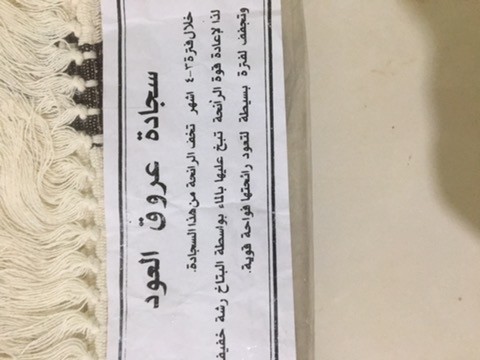 سجادة عروق العود
خلال فترة ٣-٤ اشهر تخف الرائحة من هذا السجادة.
لذا لإعادة قوة الرائحة تبخ عليها بالماء بواسطة البتاخ رشة خفيفة
وتجفف لفترة بسيطة لتعود رائحتها فواحة قوية.